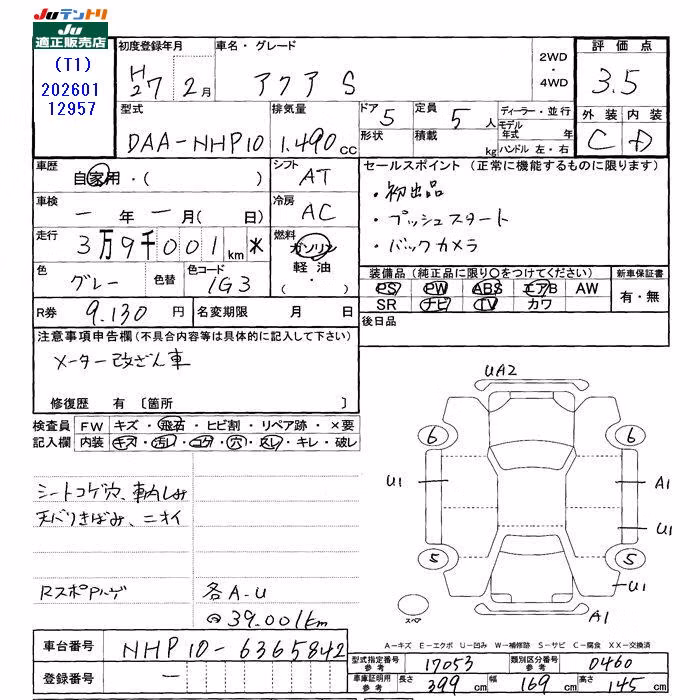 Juテントリ
Ju
適正販売店
(T1)
202601
12957
初度登録年月
H27 2月
車名・グレード
アクア S
2WD
・
4WD
評価点
3.5
外装 内装
C D
型式
DAA-NHP10
排気量
1.490 cc
ドア 5
形状
定員 5 人
積載 kg
ディーラー・並行
モデル年式 年
ハンドル 左・右
車歴
自家用・( )
シフト
AT
車検
一 年 一 月( 日)
冷房
AC
走行
3万9千001km 米
燃料
ガソリン
軽油
( ・ )
色
グレー
色替
色コード
1G3
R券
9.130 円
名変期限 月 日
セールスポイント (正常に機能するものに限ります)
・初出品
・プッシュスタート
・バックカメラ
装備品(純正品に限り○をつけてください)
新車保証書
PS PW ABS エアB AW
SR ナビ TV カワ
有・無
後日品
注意事項申告欄(不具合内容等は具体的に記入して下さい)
メーター改ざん車
修復歴 有 〔箇所 〕
検査員 FW キズ・飛石・ヒビ割・リペア跡・×要
記入欄 内装 キズ・汚レ・コゲ・穴・スレ・キレ・破レ
シートコゲ穴、車内しみ
天バリきばみ、ニオイ
各A-U
@39.001km
UA2
6 6
U1 A1
U1
5 5
U1
スペア
A1
A-キズ E-エクボ U-凹み W-補修跡 S-サビ C-腐食 XX-交換済
車台番号
NHP10-6365842
登録番号
一
型式指定番号 参考
17053
類別区分番号 参考
0460
車庫証明用 参考
長さ 399 cm 幅 169 cm 高さ 145 cm